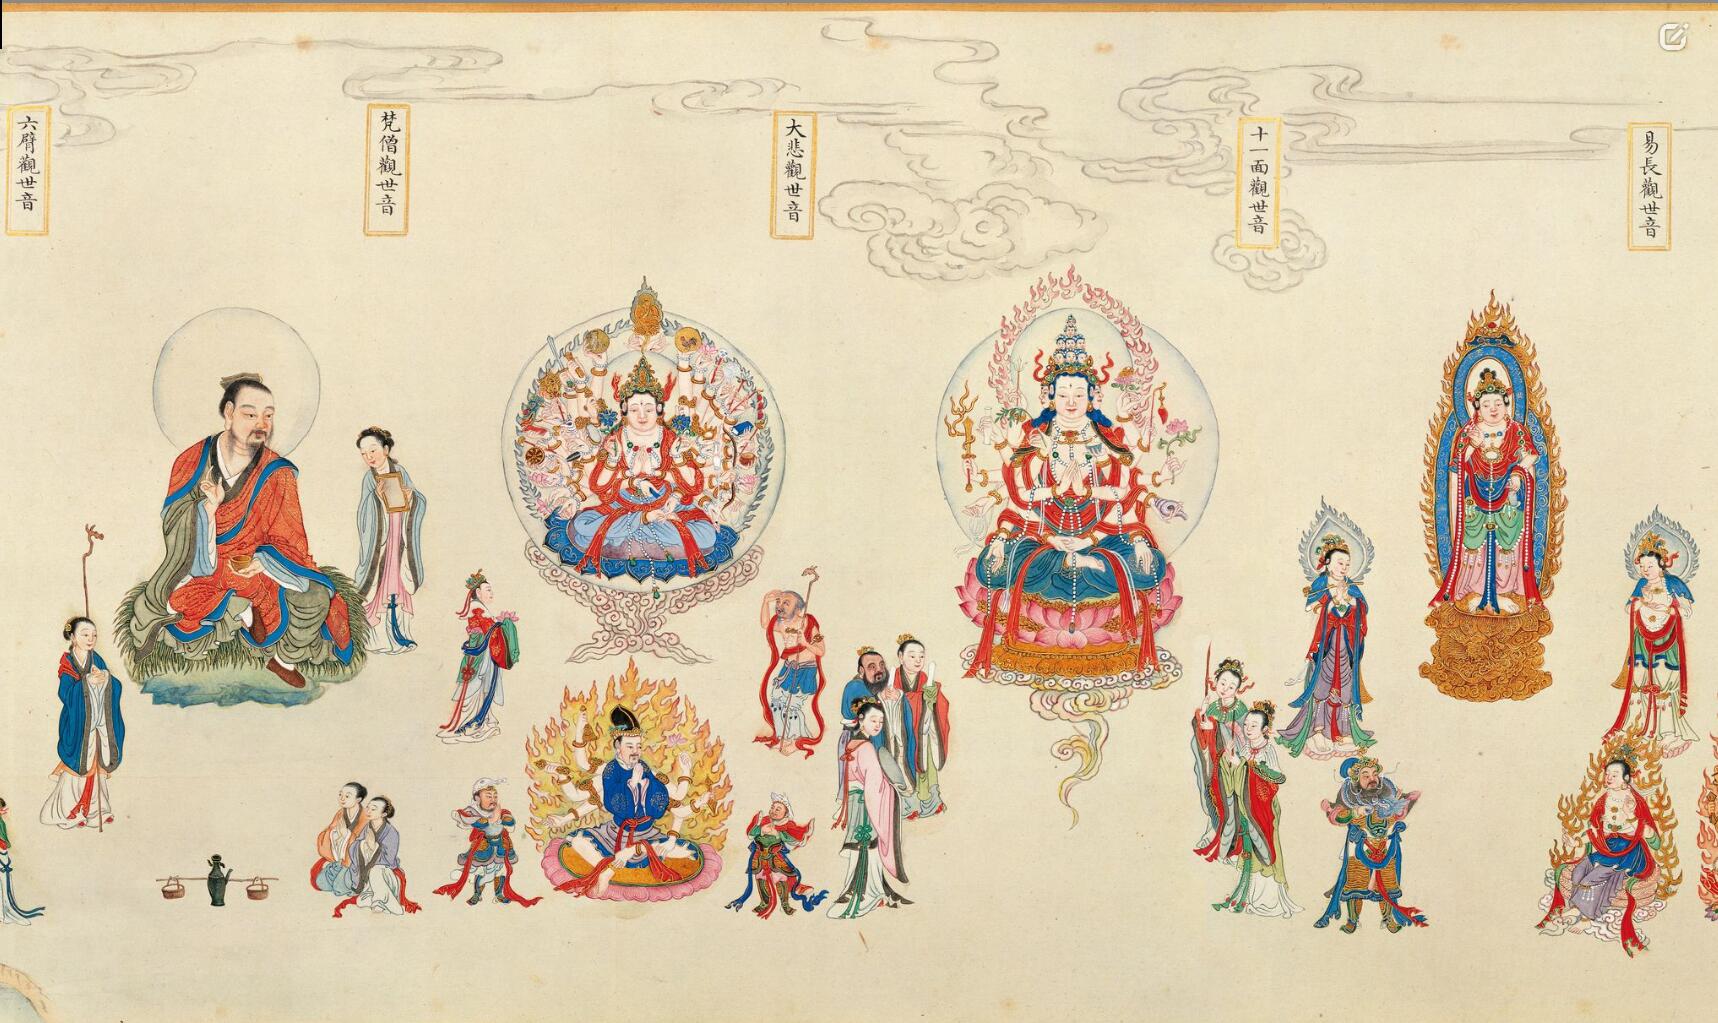 易長觀世音
十一面觀世音
大悲觀世音
梵僧觀世音
六臂觀世音